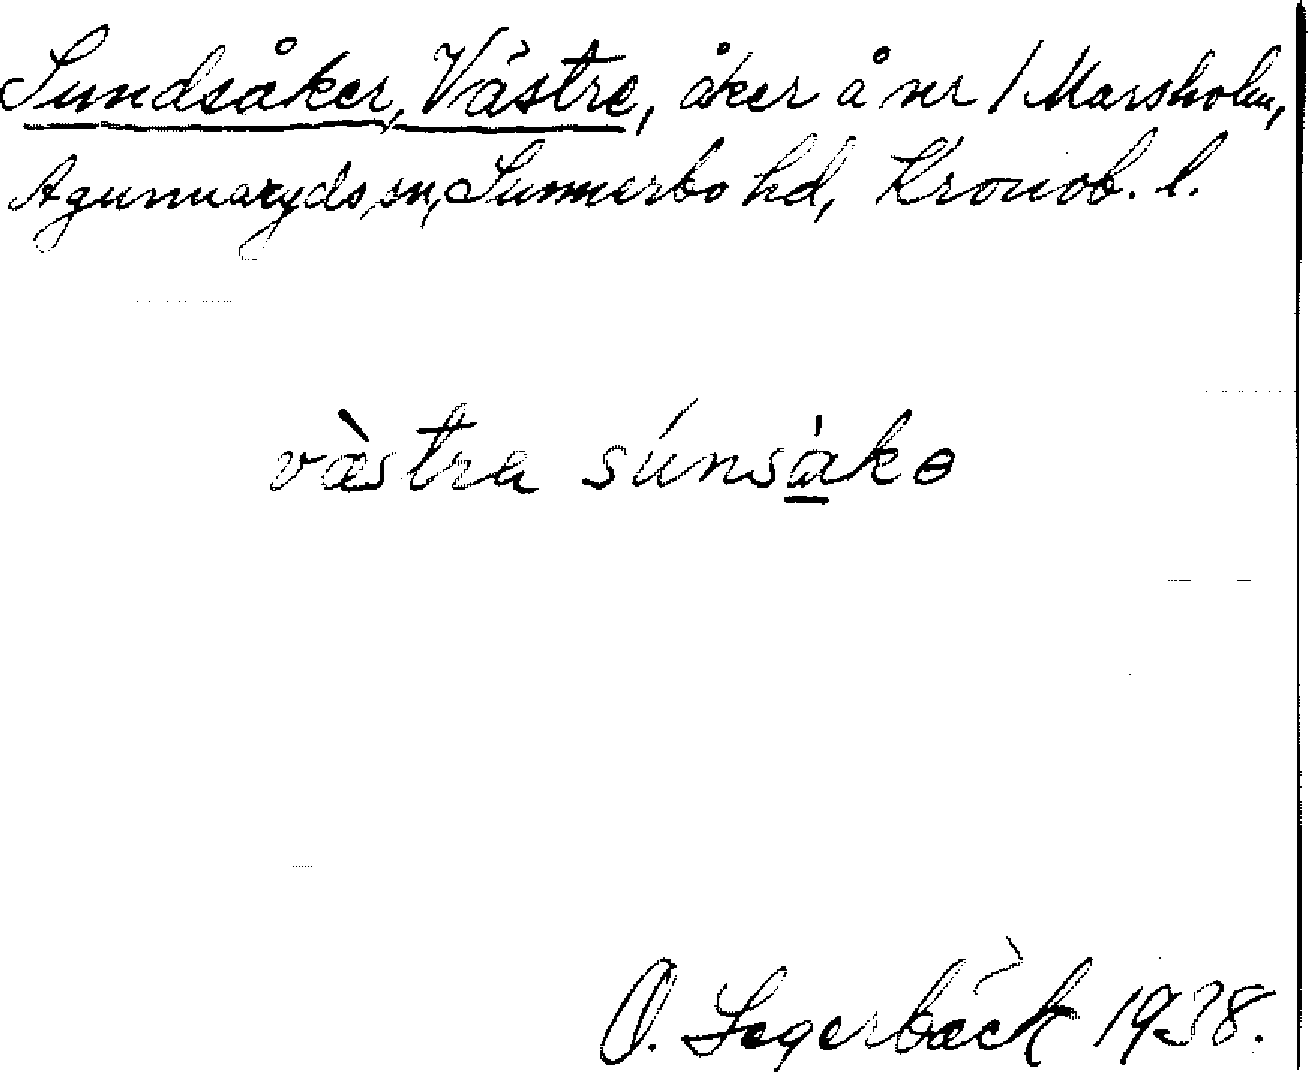 Sundsåker, Västre, åker å nr 1 Marsholm,
Agunnaryds sn, Sunnerbo hd, Kronob. l.
vàstra súnsàkə
O. Segerbäck 1938.